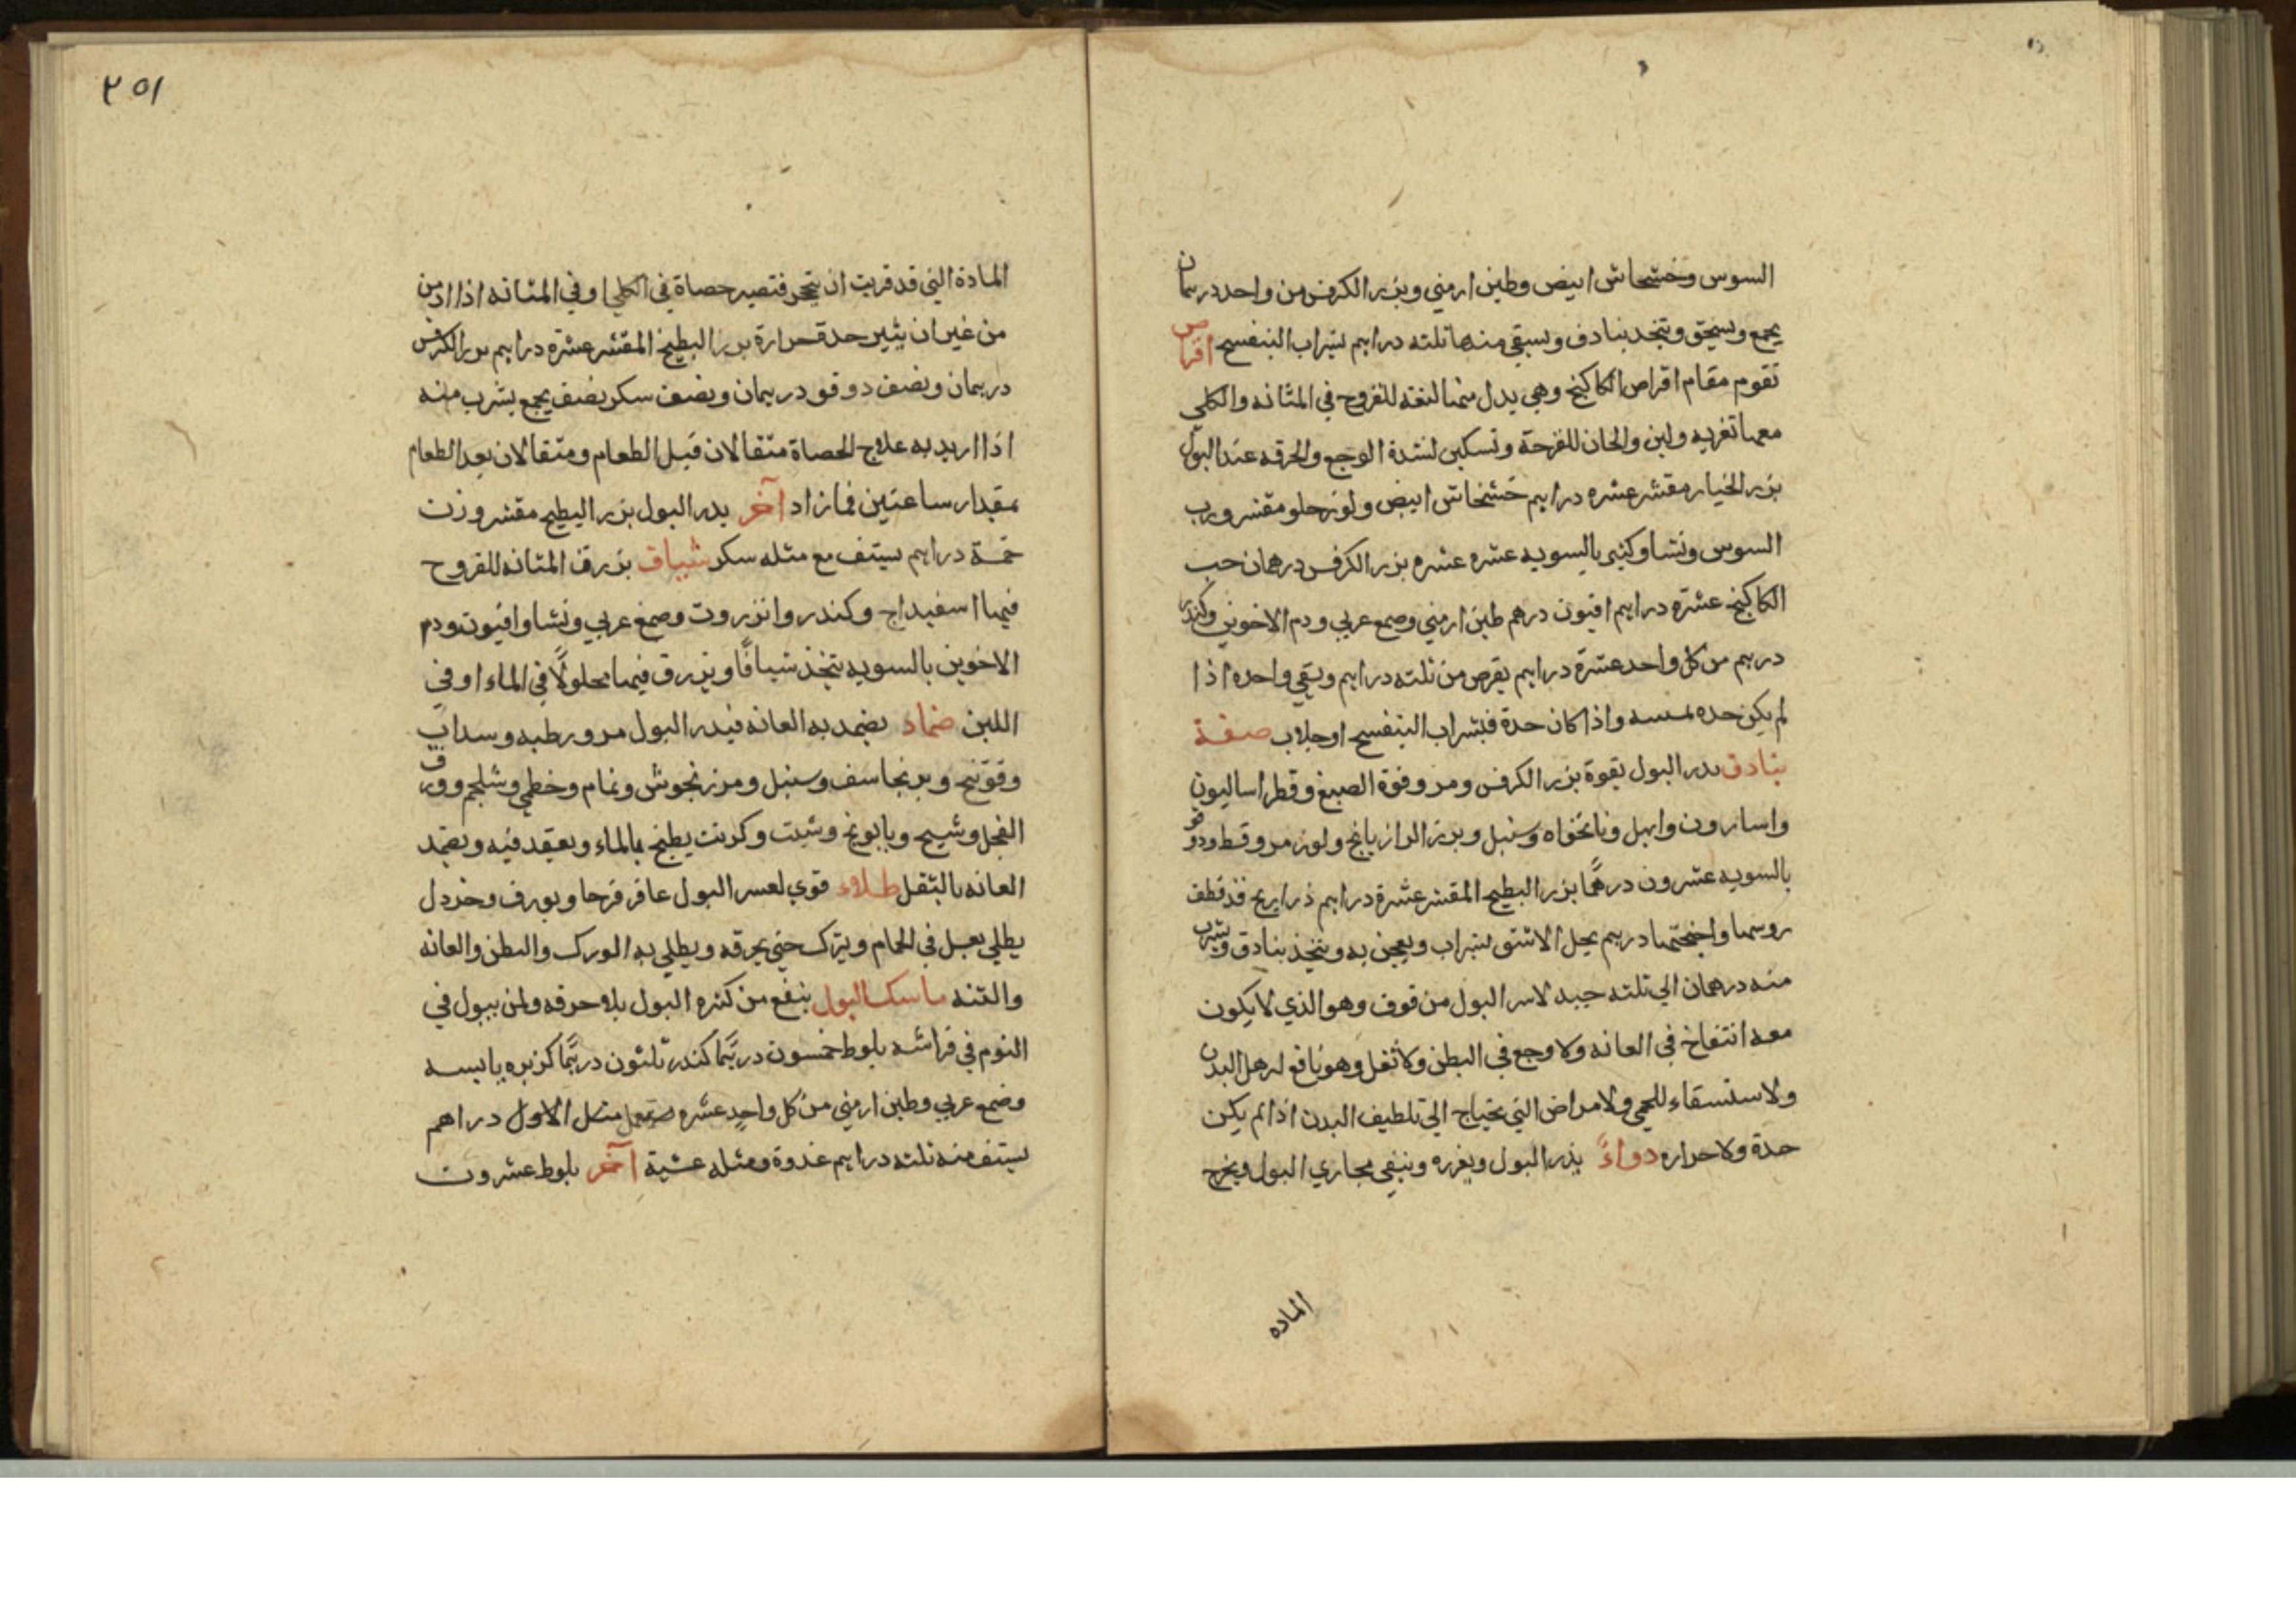 السوس وخشخاش ابيض وطين ارمني وبزر الكرفس من واحد درهمان
يجمع ويسحق ويتخذ بنادق ويسقي منها ثلثه دراهم بشراب البنفسج اقراص
تقوم مقام اقراص الكاكنج وهي يدل منها لنفعه للقروح في المثانه والكلي
معها تغريه ولين والحان للقرحة وتسكين لشدة الوجع والحرقه عند البول
بزر الخيار مقشر عشره دراهم خشخاش ابيض ولوز حلو مقشر ورب
السوس ونشا وكثيرا بالسويه عشره عشره بزر الكرفس درهمان حب
الكاكنج عشره دراهم افيون درهم طين ارمني وصمغ عربي ودم الاخوين وكندر
درهم من كل واحد عشرة دراهم يقرص من ثلثه دراهم ويسقي واحده اذا
لم يكن حده واذا كان حدة فبشراب البنفسج او جلاب صفة
بنادق يدر البول بقوة بزر الكرفس ومر وفوة الصبغ وقطر اساليون
واسارون وابهل ونانخواه وسنبل وبزر الرازيانج ولوز مر وقسط ودوقو
بالسويه عشرون درهمًا بزر البطيخ المقشر عشرة دراهم ذراريح قد قطف
روسها واجنحتها درهم يحل الاشق بشراب ويعجن به ويتخذ بنادق ويشرب
منه درهمان الي ثلثه جيد لاسر البول من فوق وهو الذي لا يكون
معه انتفاخ في العانه ولا وجع في البطن ولا ثقل وهو نافع لرهل البدن
ولاستسقاء للحمي ولامراض التي يحتاج الي تلطيف البدن اذا لم يكن
حدة ولا حراره دواءً يدر البول ويغزره وينقي مجاري البول ويخرج
الماده
٢٥١
المادة التي قد قربت ان يتحجر فتصير حصاة في الكلي او في المثانه اذا ادمن
من غير ان يثير حدة حرارة بزر البطيخ المقشر عشره دراهم بزر الكرفس
درهمان ونصف دوقو درهمان ونصف سكر نصف يجمع يشرب منه
اذا اريد به علاج الحصاة مثقالان قبل الطعام ومثقالان بعد الطعام
بمقدار ساعتين فما زاد آخر يدر البول بزر البطيخ مقشر وزن
خمسة دراهم يستف مع مثله سكر شياف بزرق المثانه للقروح
فيها اسفيداج وكندر وانزروت وصمغ عربي ونشا وافيون ودم
الاخوين بالسويه يتخذ شيافًا ويزرق فيها محلولًا في الماء او في
اللبن ضماد يضمد به العانه فيدر البول مر ورطبه وسداب
وفوتنج وبرنجاسف وسنبل ومرزنجوش ونمام وخطمي وشلجم وورق
الفجل وشيح وبابونج وشبت وكرنب يطبخ بالماء ويعقد فيه ويضمد
العانه بالثقل طلاء قوي لعسر البول عاقر قرحا وبورق وخردل
يطلي بعسل في الحمام ويترك حتي يحرقه ويطلي به الورك والبطن والعانه
والثنه ماسك البول ينفع من كثره البول بلا حرقه ولمن يبول في
النوم في فراشه بلوط خمسون درهمًا كندر ثلثون درهمًا كزبره يابسه
وصمغ عربي وطين ارمني من كل واحد عشره يستعمل مثل الاول دراهم
يستف منه ثلثه دراهم غدوة ومثله عشية آخر بلوط عشرون